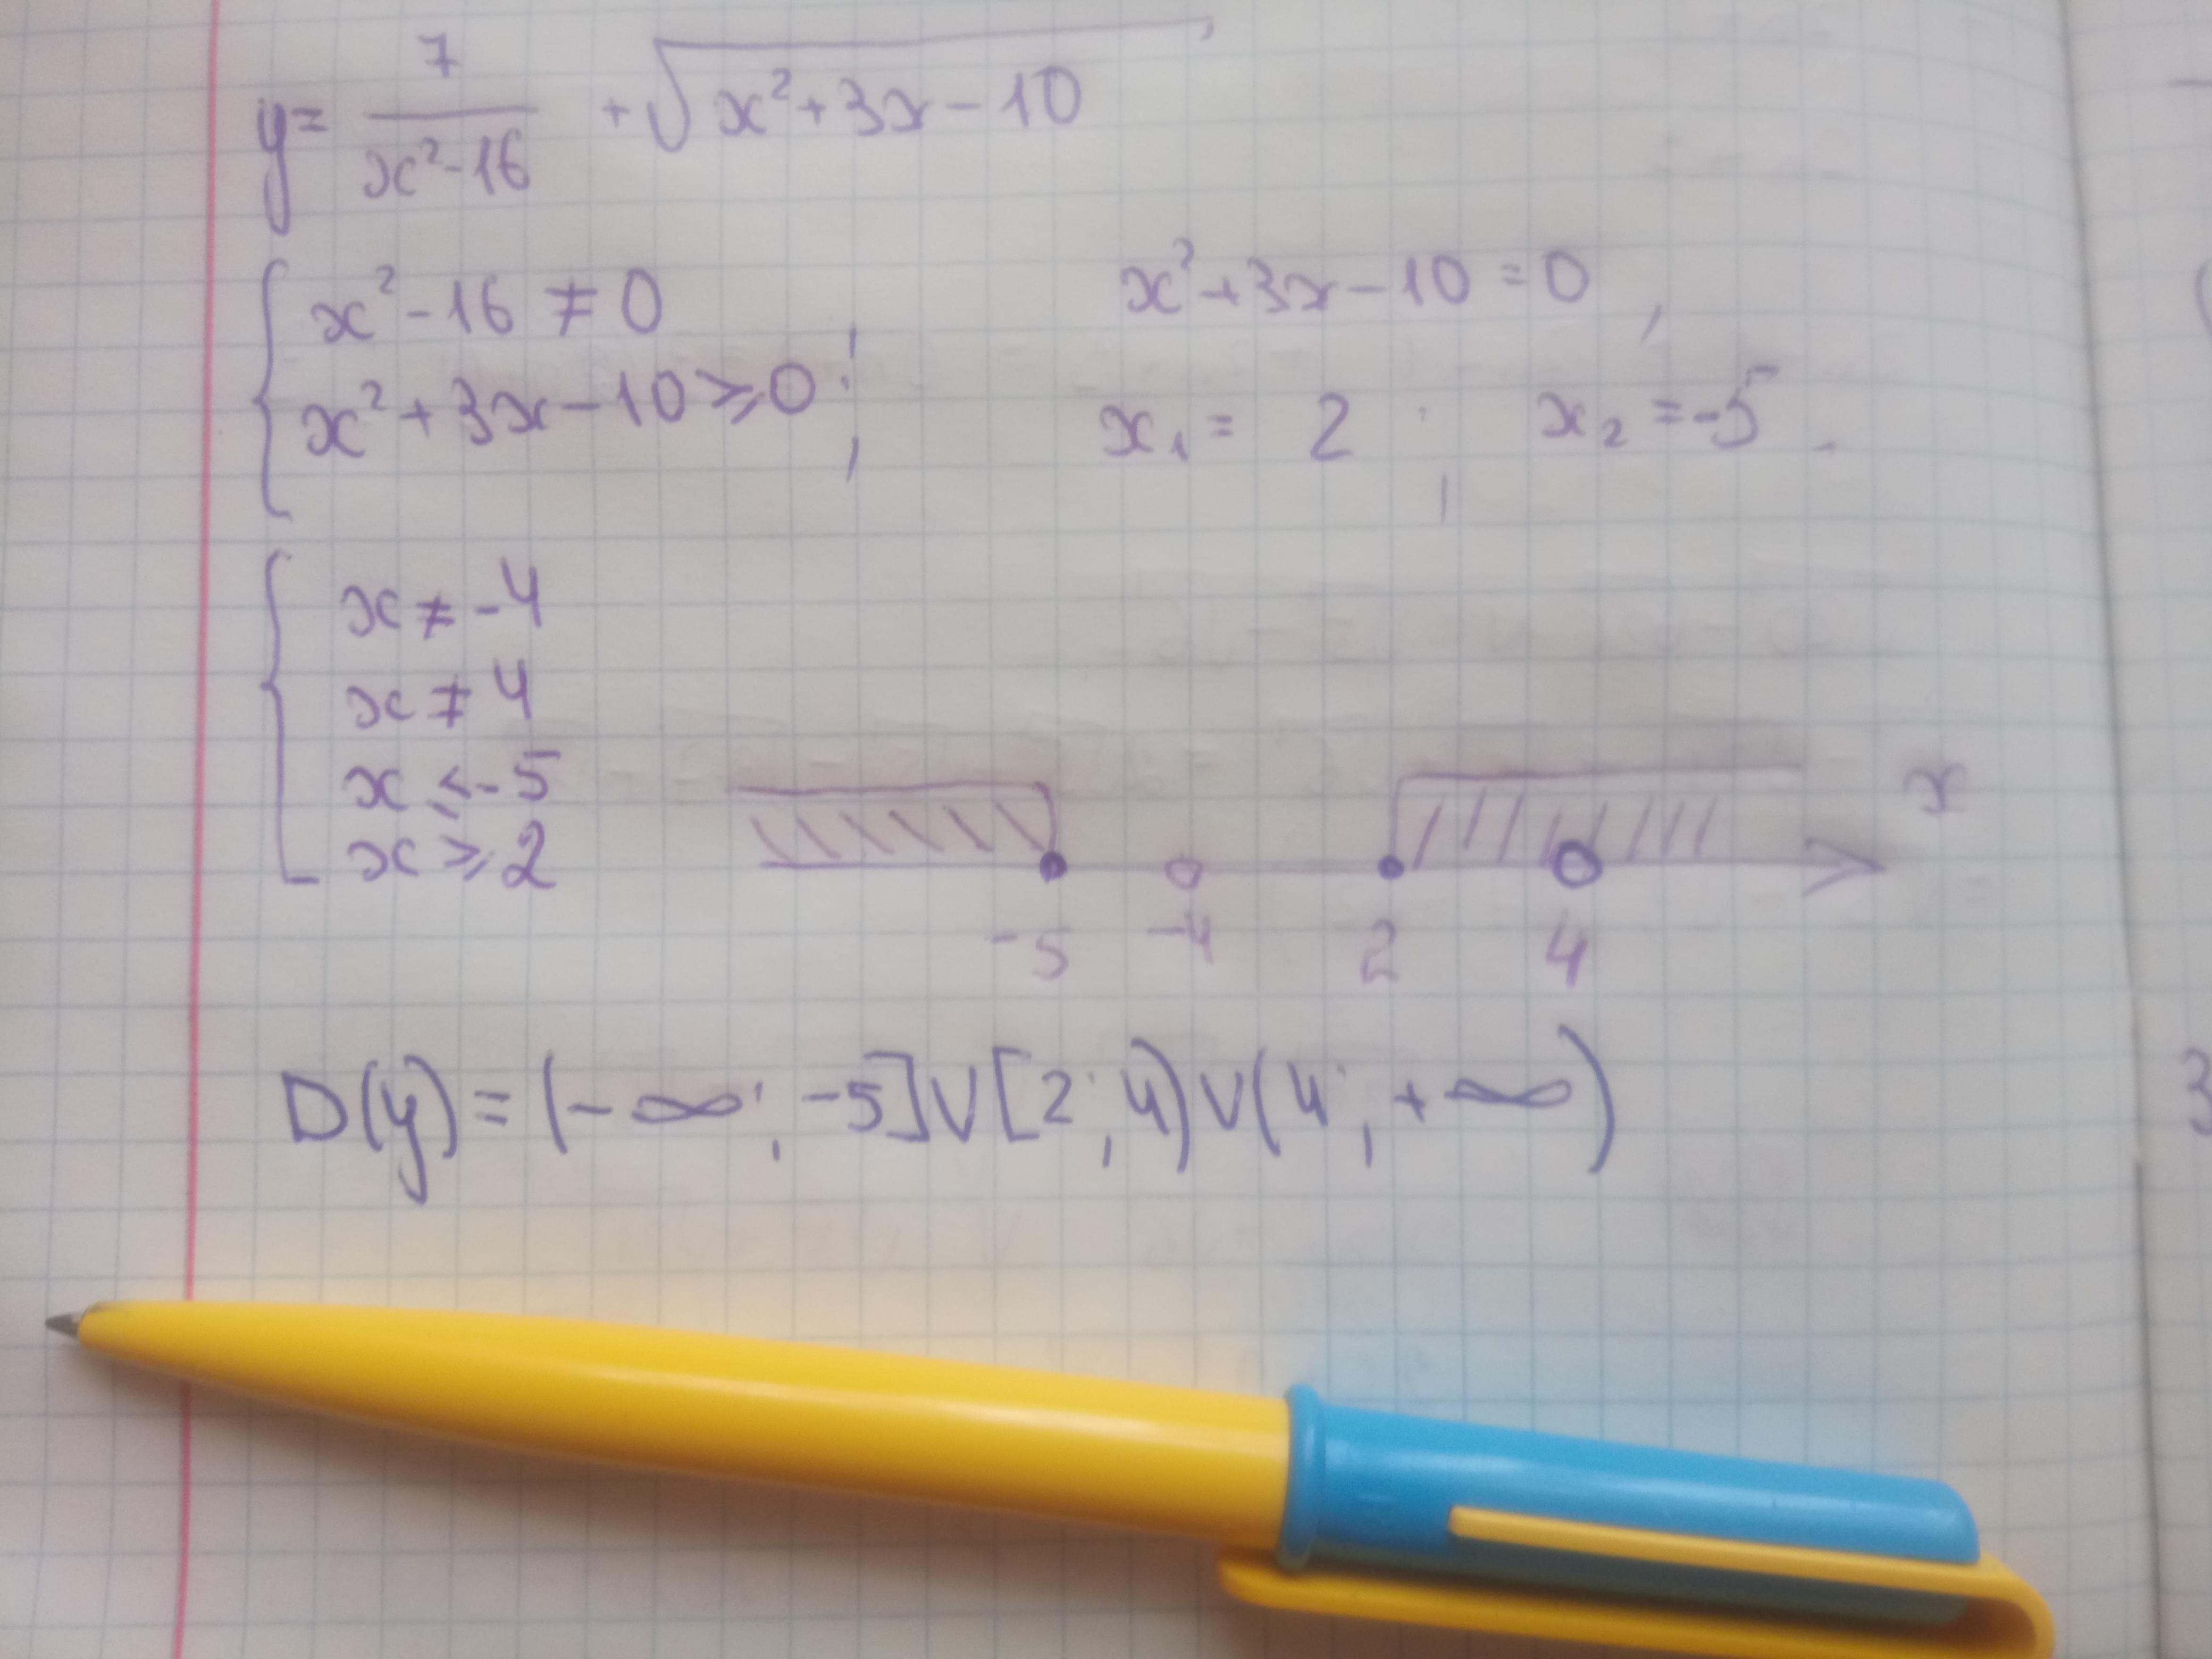 y = 7/(x² - 16) + √(x² + 3x - 10)
{ x² - 16 ≠ 0
x² + 3x - 10 ≥ 0 ;
x² + 3x - 10 = 0,
x₁ = 2 ; x₂ = -5.
{ x ≠ -4
x ≠ 4
x ≤ -5
x ≥ 2
x
-5 -4 2 4
D(y) = (-∞; -5] ∪ [2; 4) ∪ (4; +∞)